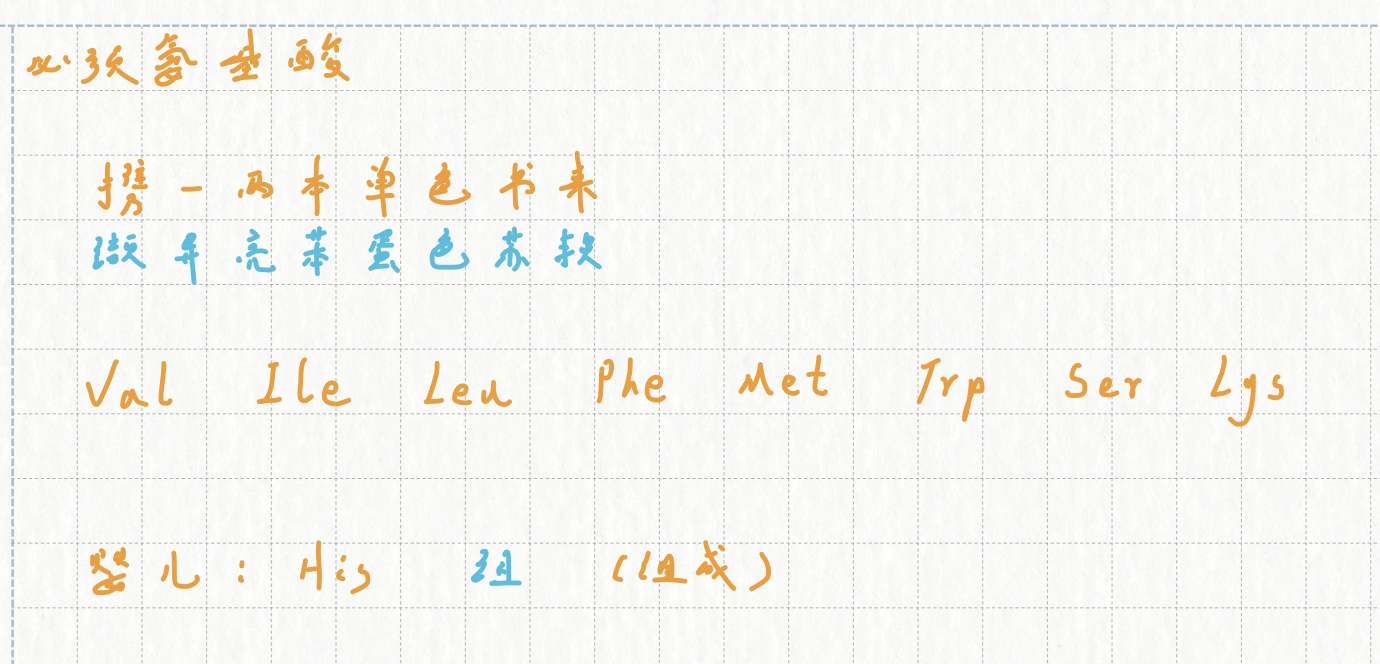 必须氨基酸
携一两本单色书来
缬异亮苯蛋色苏赖
Val Ile Leu Phe Met Trp Ser Lys
婴儿：His 组 （组成）